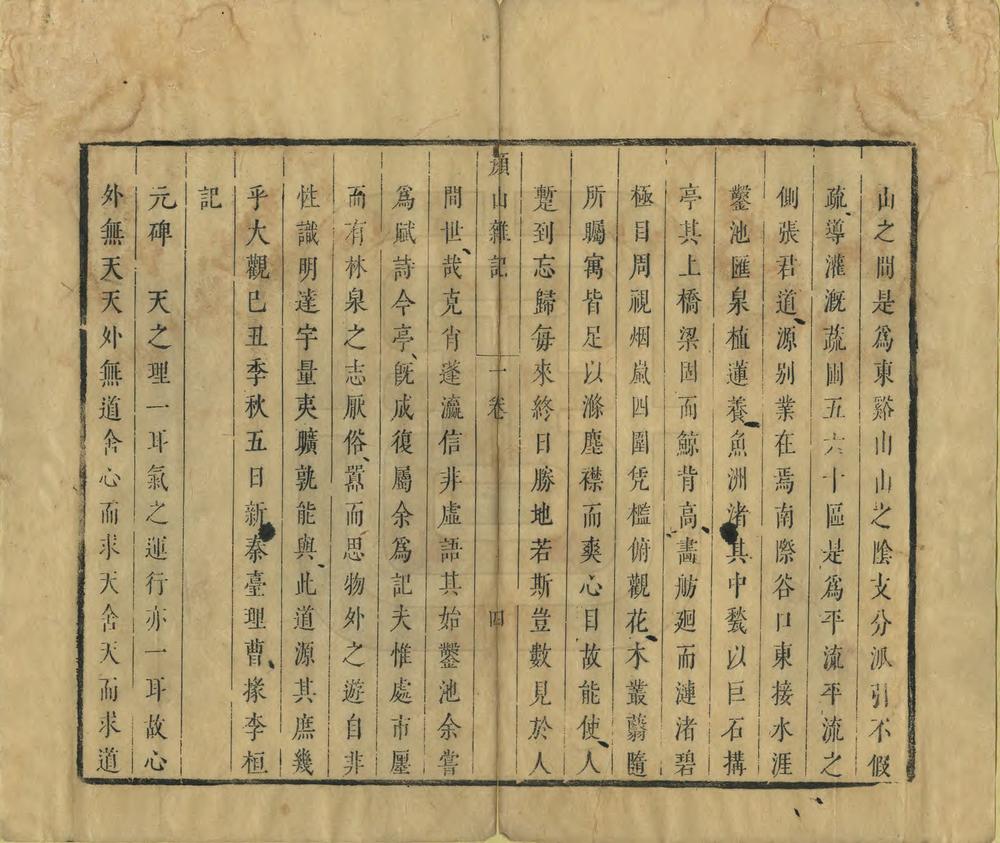 山之間是爲東谿山山之陰支分派引不假
疏導灌漑蔬圃五六十區是爲平流平流之
側張君道源别業在焉南際谷口東接水涯
鑿池匯泉植蓮養魚洲渚其中甃以巨石搆
亭其上橋梁固而鯨背高畵舫廻而漣渚碧
極目周視烟嵐四圍凭檻俯觀花木叢蔚隨
所矚寓皆足以滌塵襟而爽心目故能使人
蹔到忘歸每來終日勝地若斯豈數見於人
顏山雜記 一卷 四
間世哉克肖蓬瀛信非虛語其始鑿池余嘗
爲賦詩今亭旣成復屬余爲記夫惟處市廛
而有林泉之志厭俗囂而思物外之遊自非
性識明達宇量夷曠孰能與此道源其庶幾
乎大觀己丑季秋五日新秦臺理曹掾李桓
記
元碑 天之理一耳氣之運行亦一耳故心
外無天天外無道舍心而求天舍天而求道